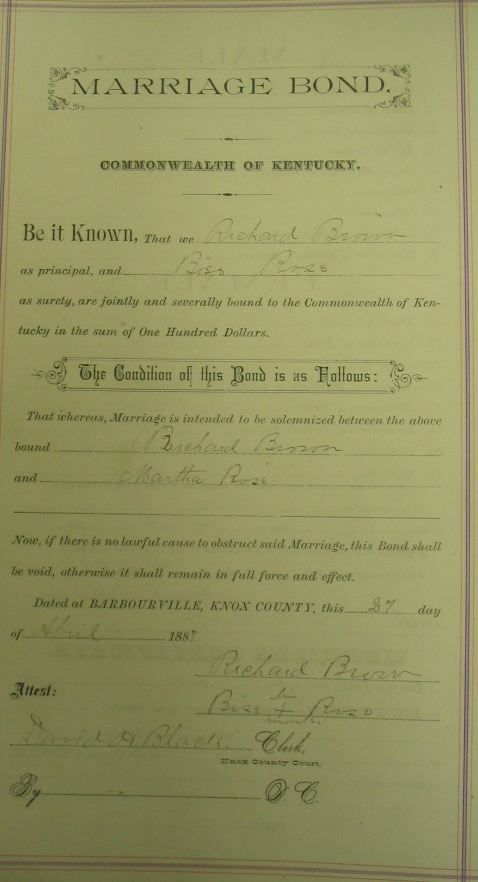 MARRIAGE BOND.
COMMONWEALTH OF KENTUCKY.
Be it Known, That we Richard Brown
as principal, and Bise Rose
as surety, are jointly and severally bound to the Commonwealth of Ken-
tucky in the sum of One Hundred Dollars.
The Condition of this Bond is as Follows:
That whereas, Marriage is intended to be solemnized between the above
bound Richard Brown
and Martha Rose
Now, if there is no lawful cause to obstruct said Marriage, this Bond shall
be void, otherwise it shall remain in full force and effect.
Dated at BARBOURVILLE, KNOX COUNTY, this 27 day
of April 1887
Richard Brown
Attest:
his
Bise + Rose
mark
David H Black Clerk,
Knox County Court.
By D. C.